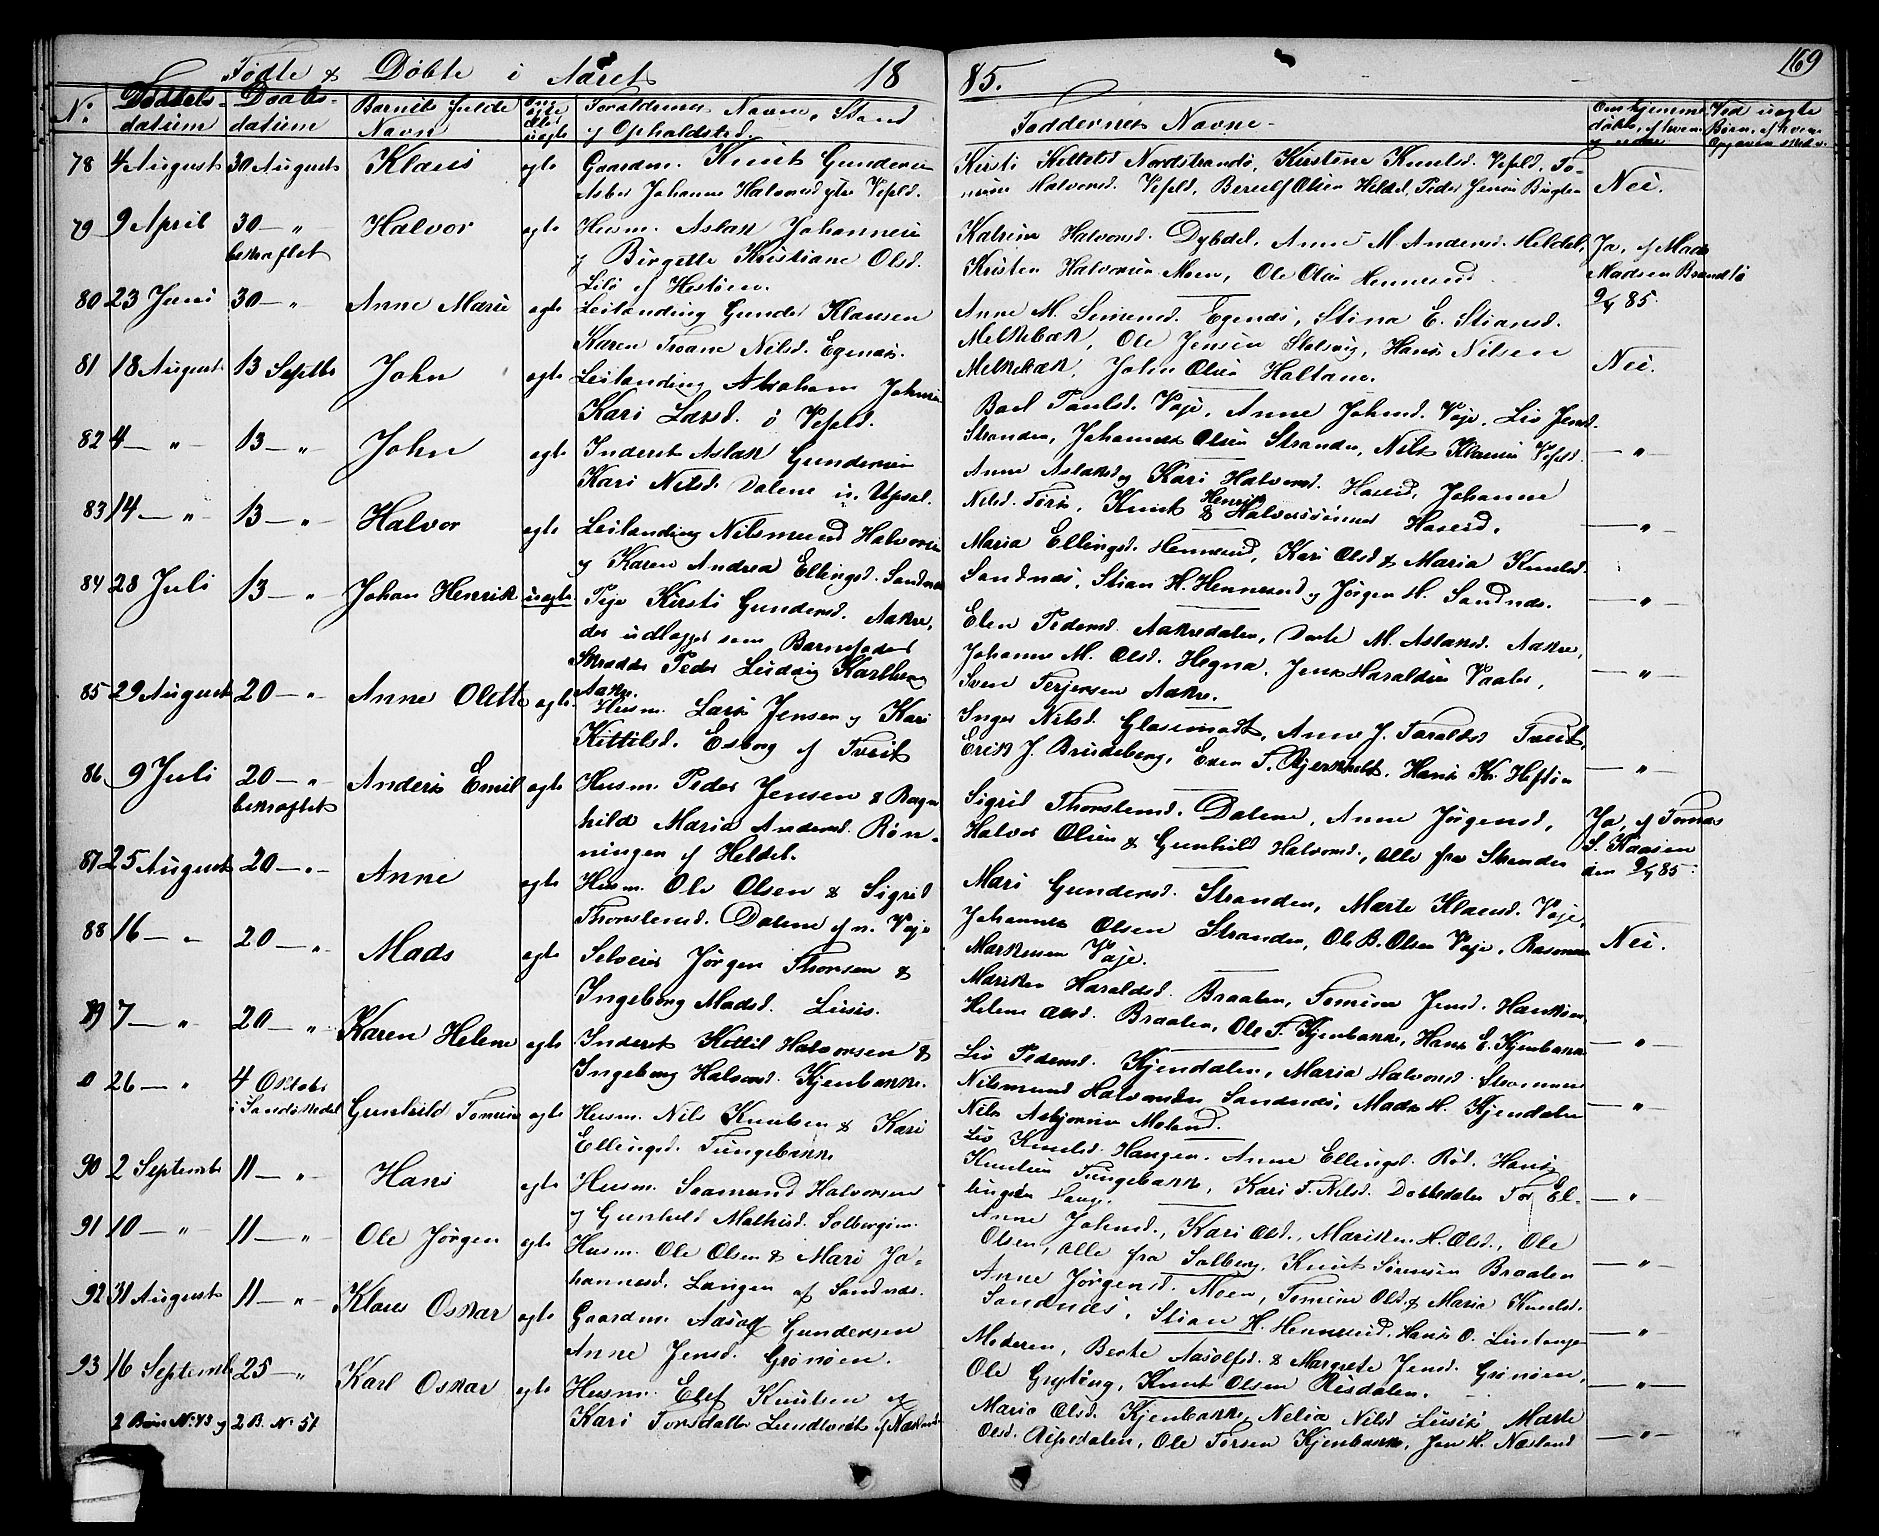 Fødte & Døbte i Aaret 18
85.
169
No Fødsels-datum Daabs-datum Barnets fulde Navn Om ægte eller uægte Forældrenes Navne, Stand og Opholdsted.
Faddernes Navne
Om hjemmedøbte, af hvem og naar
Ved uægte Børn, af hvem Opgaven skedt
78 4 August 30 August Klaus egte Gaardm. Knut Gundersen
Johanne Halvorsd ytre Vefald.
Kirsti Kettelsd Nordstrandø, Kirstine Knutsd. Vefald, To-
Halvorsd. Vefald, Olsen Heldal, Peder Jensen
Nei.
79 9 April 30 — " Halvor egte Husm. Aslak Johannesen
bekræftet
og Birgette Kristiane Olsd.
Lilø af Hestøen.
Katrine Halvorsd. Dybdal, Anne M. Andersd. Heldal,
Kristen Halvorsen Moen, Ole Olsen Hennesund
Ja, af Mads
Madsen Brandtø
9/4 85.
80 23 Juni 30 — " Anne Marie egte Leilanding Gunder Klausen
Karen Nilsd. Egenæs.
Anne M. Simensd. Egenæs, Stina E. Stiansd.
Melkebæk, Ole Jensen Stolsvig, Hans Nilsen
Melkebæk, John Olsen Haltane.
Nei.
81 18 August 13 Septbr John egte Leilanding Abraham Johnsen
Kari Larsd. i Vefald.
Boel Paulsd. Vaje, Anne Johnsd. Vaje, Liv Jensd.
Stranden, Johannes Olsen Stranden, Nils Klausen Vefald
— " —
82 4 — " — 13 — " — John egte Inderst Aslak Gundersen
Kari Nilsd. Dalene u. Upsal.
Anne Aslaksd og Kari Halvorsd. Haseid, Johanne
Nilsd. Knut & Henrik Halvorssønner Haseid.
— " —
83 14 — " — 13 — " — Halvor egte Leilanding Nilsmund Halvorsen
og Karen Andrea Ellingsd. Sandnæs
Maria Ellingsd. Hennesund, Kari Olsd & Maria Knutsd.
Sandnæs, Stian H. Hennesund og Jørgen H. Sandnæs.
— " —
84 28 Juli 13 — " Johan Henrik uægte Pige Kirsti Gundersd. Aakre,
der udlægger som Barnefader
Skrædder Peder Ludvig Karlberg
Aakre.
Elen Pedersd. Aakredalen, Dorte M. Aslaksd. Aakre,
Johanne M. Olsd. Hegna, Jens Haraldsen Vaaler,
Sven Terjersen Aakre.
— " —
85 29 August 20 — " Anne Olette egte Husm. Lars Jensen og Kari
Kittilsd. Esborg af Tveit
Inger Nilsd. Glasemodt, Anne J. Taraldsd Tveit,
Erik J. Brudeberg, Even S. Bjerkholt, Hans Kr. Heftøen
— " —
86 9 Juli 20 — " Anders Emil egte Husm. Peder Jensen & Ragn
bekræftet
hild Maria Andersd. Røn-
ningen af Heldal.
Sigrid Thorstensd. Dalene, Anne Jørgensd,
Halvor Olsen & Gunhild Halvorsd., alle fra Stranden
Ja, af Tomas
S. Kaasen
den 9/7 85.
87 25 August 20 — " — Anne egte Husm. Ole Olsen & Sigrid
Thorstensd. Dalene af n. Vaje
Mari Gundersd. Stranden, Marte Klausd. Vaje,
Johannes Olsen Stranden, Ole B. Olsen Vaje, Rasmus
Markusen Vaje.
Nei.
88 16 — " 20 — " Mads egte Selveier Jørgen Thorsen &
Ingeborg Madsd. Lusis.
Mariken Haraldsd. Braaten, Tomine Jensd. Hankøen,
Helene Braaten, Ole T. Kjenbakke, Hans E. Kjenbakke
— " —
89 7 — " 20 — " Karen Helene egte Inderst Kittil Halvorsen &
Ingeborg Halvorsd. Kjenbakke.
Liv Pedersd. Kjendalen, Maria Halvorsd. Strømmen
Nilsmund Halvorsen Sandnæs, Mads H. Kjendalen
Nils Asbjørnsen Moland.
— " —
26 — " 4 Oktober Gunhild Tomine egte Husm. Nils Knutsen & Kari
i Sandøkedal
Ellingsd. Tungebakke
Liv Knutsd. Haugen, Anne Ellingsd. Rød, Hans
Knutsen Tungebakke, Kari T. Nilsd. Dobbedalen Tor El-
lingsen
— " —
90 2 Septembr 11 — " — Hans egte Husm. Saamund Halvorsen
og Gunhild Mathisd. Solbergsm.
Anne Johnsd., Kari Olsd., Mariken H. Olsd., Ole
Olsen, alle fra Solberg, Knut Sørensen Braaten
— " —
91 10 — " — 11 — " — Ole Jørgen egte Husm. Ole Olsen & Mari Jo-
hannesd. Langen af Sandnæs.
Anne Jørgensd. Moen, Tomine Olsd. & Maria Knutsd.
Sandnæs, Stian H. Hennesund, Hans O. Lintange
— " —
92 31 August 11 — " — Klaus Oskar egte Gaardm. Aasolf Gundersen
Anne Jensd. Grønøen.
Moderen, Berte Aasolfsd. & Margrete Jensd. Grønøen,
Ole Gryting, Knut Olsen Risdalen.
— " —
93 16 Septemb 25 — " Karl Oskar egte Husm. Elef Knutsen og
Kari Torsdatter Lundtvedt af Næslund
Maria Olsd. Kjenbakke, Nelia Nilsd Lusis, Marte
Olsd. Ripedalen, Ole Torsen Kjenbakke, Jan H. Næslund
— " —
2 Børn No 43 og 2 B. No 51